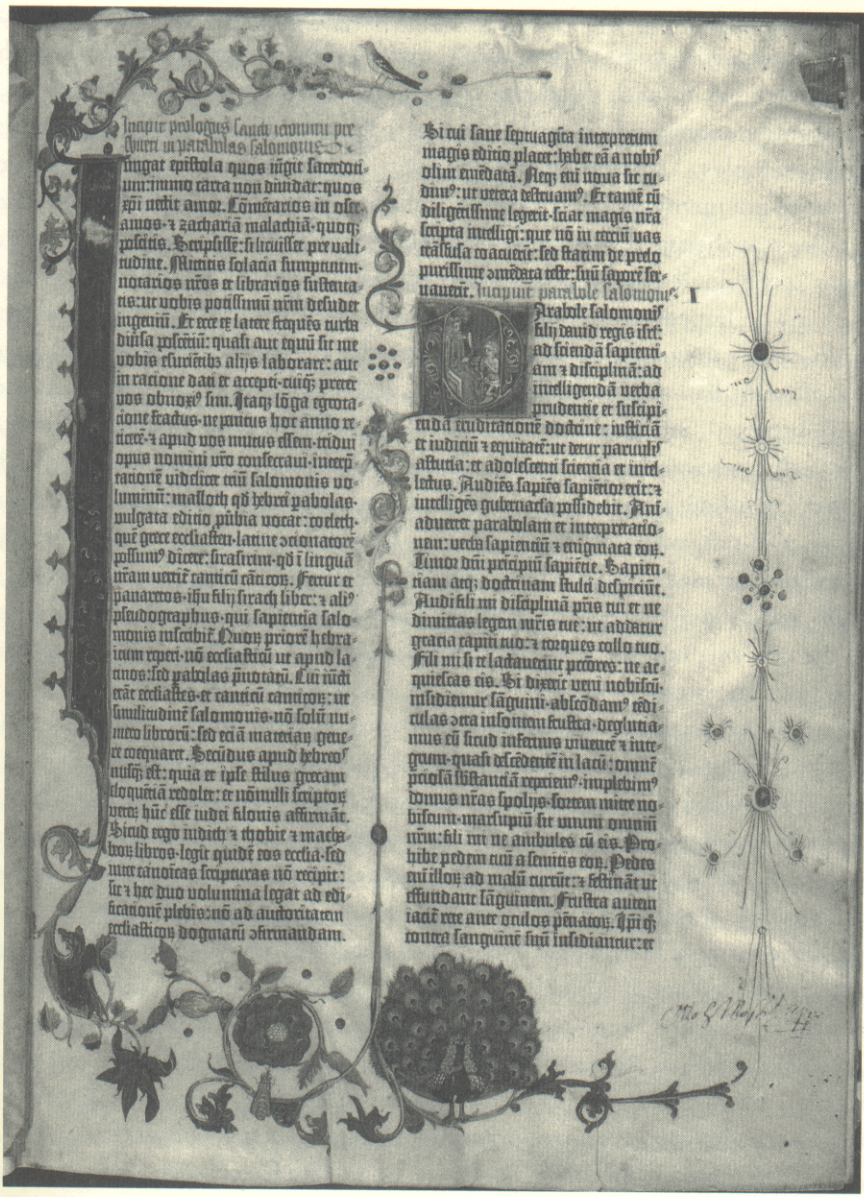 Incipit prologus sancti iheronimi pre
sbiteri in parabolas salomonis
Iungat epistola quos iūgit sacerdoti-
um: immo carta non dividat: quos
xp̄i nectit amor. Cōmētarios in osee.
amos. ⁊ zachariā malachiā. quoq̄ꝫ
poscitis. Scripsissē: si licuisset pre vali-
tudine. Mittitis solacia sumptuum.
notarios nr̄os et librarios sustenta-
tis: ut vobis potissimū nr̄m desudet
ingeniū. Et ecce ex latere freq̄uēs turba
diūsa poscētiū: quasi aut equū sit me
vobis esurientibꝫ alijs laborare: aut
in ratione dati et accepti. cuiq̄ꝫ preter
vos obnoxiꝰ sim. Itaqꝫ lōga egrota-
tione fractus. ne penitus hoc anno re-
ticerē. ⁊ apud vos mutus essem. tridui
opus nomini vr̄o consecravi. interp̄-
tationē videlicet triū salomonis vo-
luminū: masloth qd̄ hebrei p̄abolas.
vulgata editio p̄ūbia vocat: coeleth.
quē grece ecclesiasten. latine ↄcionatorē
possumꝰ dicere: sirasirim. qd̄ ī linguā
nr̄am vertit̄ canticū cāticoꝝ. Fertur et
panaretos. ih̄u filij sirach liber: ⁊ aliꝰ
pseudographus. qui sapientia salo-
monis inscribit̄. Quoꝝ priorē hebra-
icum reperi. nō ecclesiasticū ut apud la-
tinos: sed pabolas p̄notatū. Cui iūcti
erāt ecclesiastes. et canticū canticoꝝ: ut
similitudinē salomonis. nō solū nu-
mero librorū: sed eciā materiaꝝ gene-
re coequaret. Secūdus apud hebreoꝰ
nusq̄ꝫ est: quia et ipse stilus grecam
eloquētiā redolet: et nōnulli scriptoꝝ
veteꝝ hūc esse iudei filonis affirmāt.
Sicud ergo iudith ⁊ thobie ⁊ macha-
beoꝝ libros. legit quidē eos ecclesia. sed
inter canōicas scripturas nō recipit:
sic ⁊ hec duo volumina legat ad edi-
ficationē plebis: nō ad auctoritatem
ecclesiasticoꝝ dogmatū ↄfirmandam.
Si cui sane septuagīta interpretum
magis editio placet: habet eā a nobiꝰ
olim emēdatā. Neqꝫ enī nova sic cu-
dimꝰ: ut vetera destruamꝰ. Et tamē cū
diligētissime legerit. sciat magis nr̄a
scripta intelligi: que nō in terciū vas
trāsfusa coacuerīt: sed statim de prelo
purissime ↄmēdata teste: suū saporē ser-
vaverīt. Incipiunt parabole salomonis
I
Parabole salomonis
filij david regis isrl̄:
ad sciendā sapienti-
am ⁊ disciplinā: ad
intelligendā verba
prudentie et suscipi-
endā eruditationē doctrine: iusticiā
et iudiciū ⁊ equitatē: ut detur parvulis
astutia: et adolescenti scientia et intel-
lectus. Audiēs sapiēs sapiētior erit: ⁊
intelligēs gubernac̄la possidebit. Ani-
advertet parabolam et interpretatio-
nem: verba sapientiū ⁊ enigmata eoꝝ.
Timor dn̄i prīcipiū sapiētie. Sapien-
tiam atqꝫ doctrinam stulti despiciūt.
Audi fili mi disciplinā pr̄is tui et ne
dimittas legem mr̄is tue: ut addatur
gracia capiti tuo: ⁊ torques collo tuo.
Fili mi si te lactaverint peccōres: ne ac-
quiescas eis. Si dixerīt veni nobiscū.
insidiemur sāguini. abscōdamꝰ tēdi-
culas ↄtra insontem frustra. deglutia-
mus eū sicud infernus viventē ⁊ inte-
grum. quasi descēdentē in lacū: omnē
p̄ciosā sūbstanciā reperiemꝰ. implebimꝰ
domus nr̄as spolijs. sortem mitte no-
biscum. marsupiū sit unum omniū
nr̄m: fili mi ne ambules cū eis. Pro-
hibe pedem tuū a semitis eoꝝ. Pedes
enī illoꝝ ad malū currūt: ⁊ festināt ut
effundant sāguinem. Frustra autem
iacit̄ rete ante oculos pēnatoꝝ. Ip̄i q̄ꝫ
contra sanguinē suū insidiantur: et